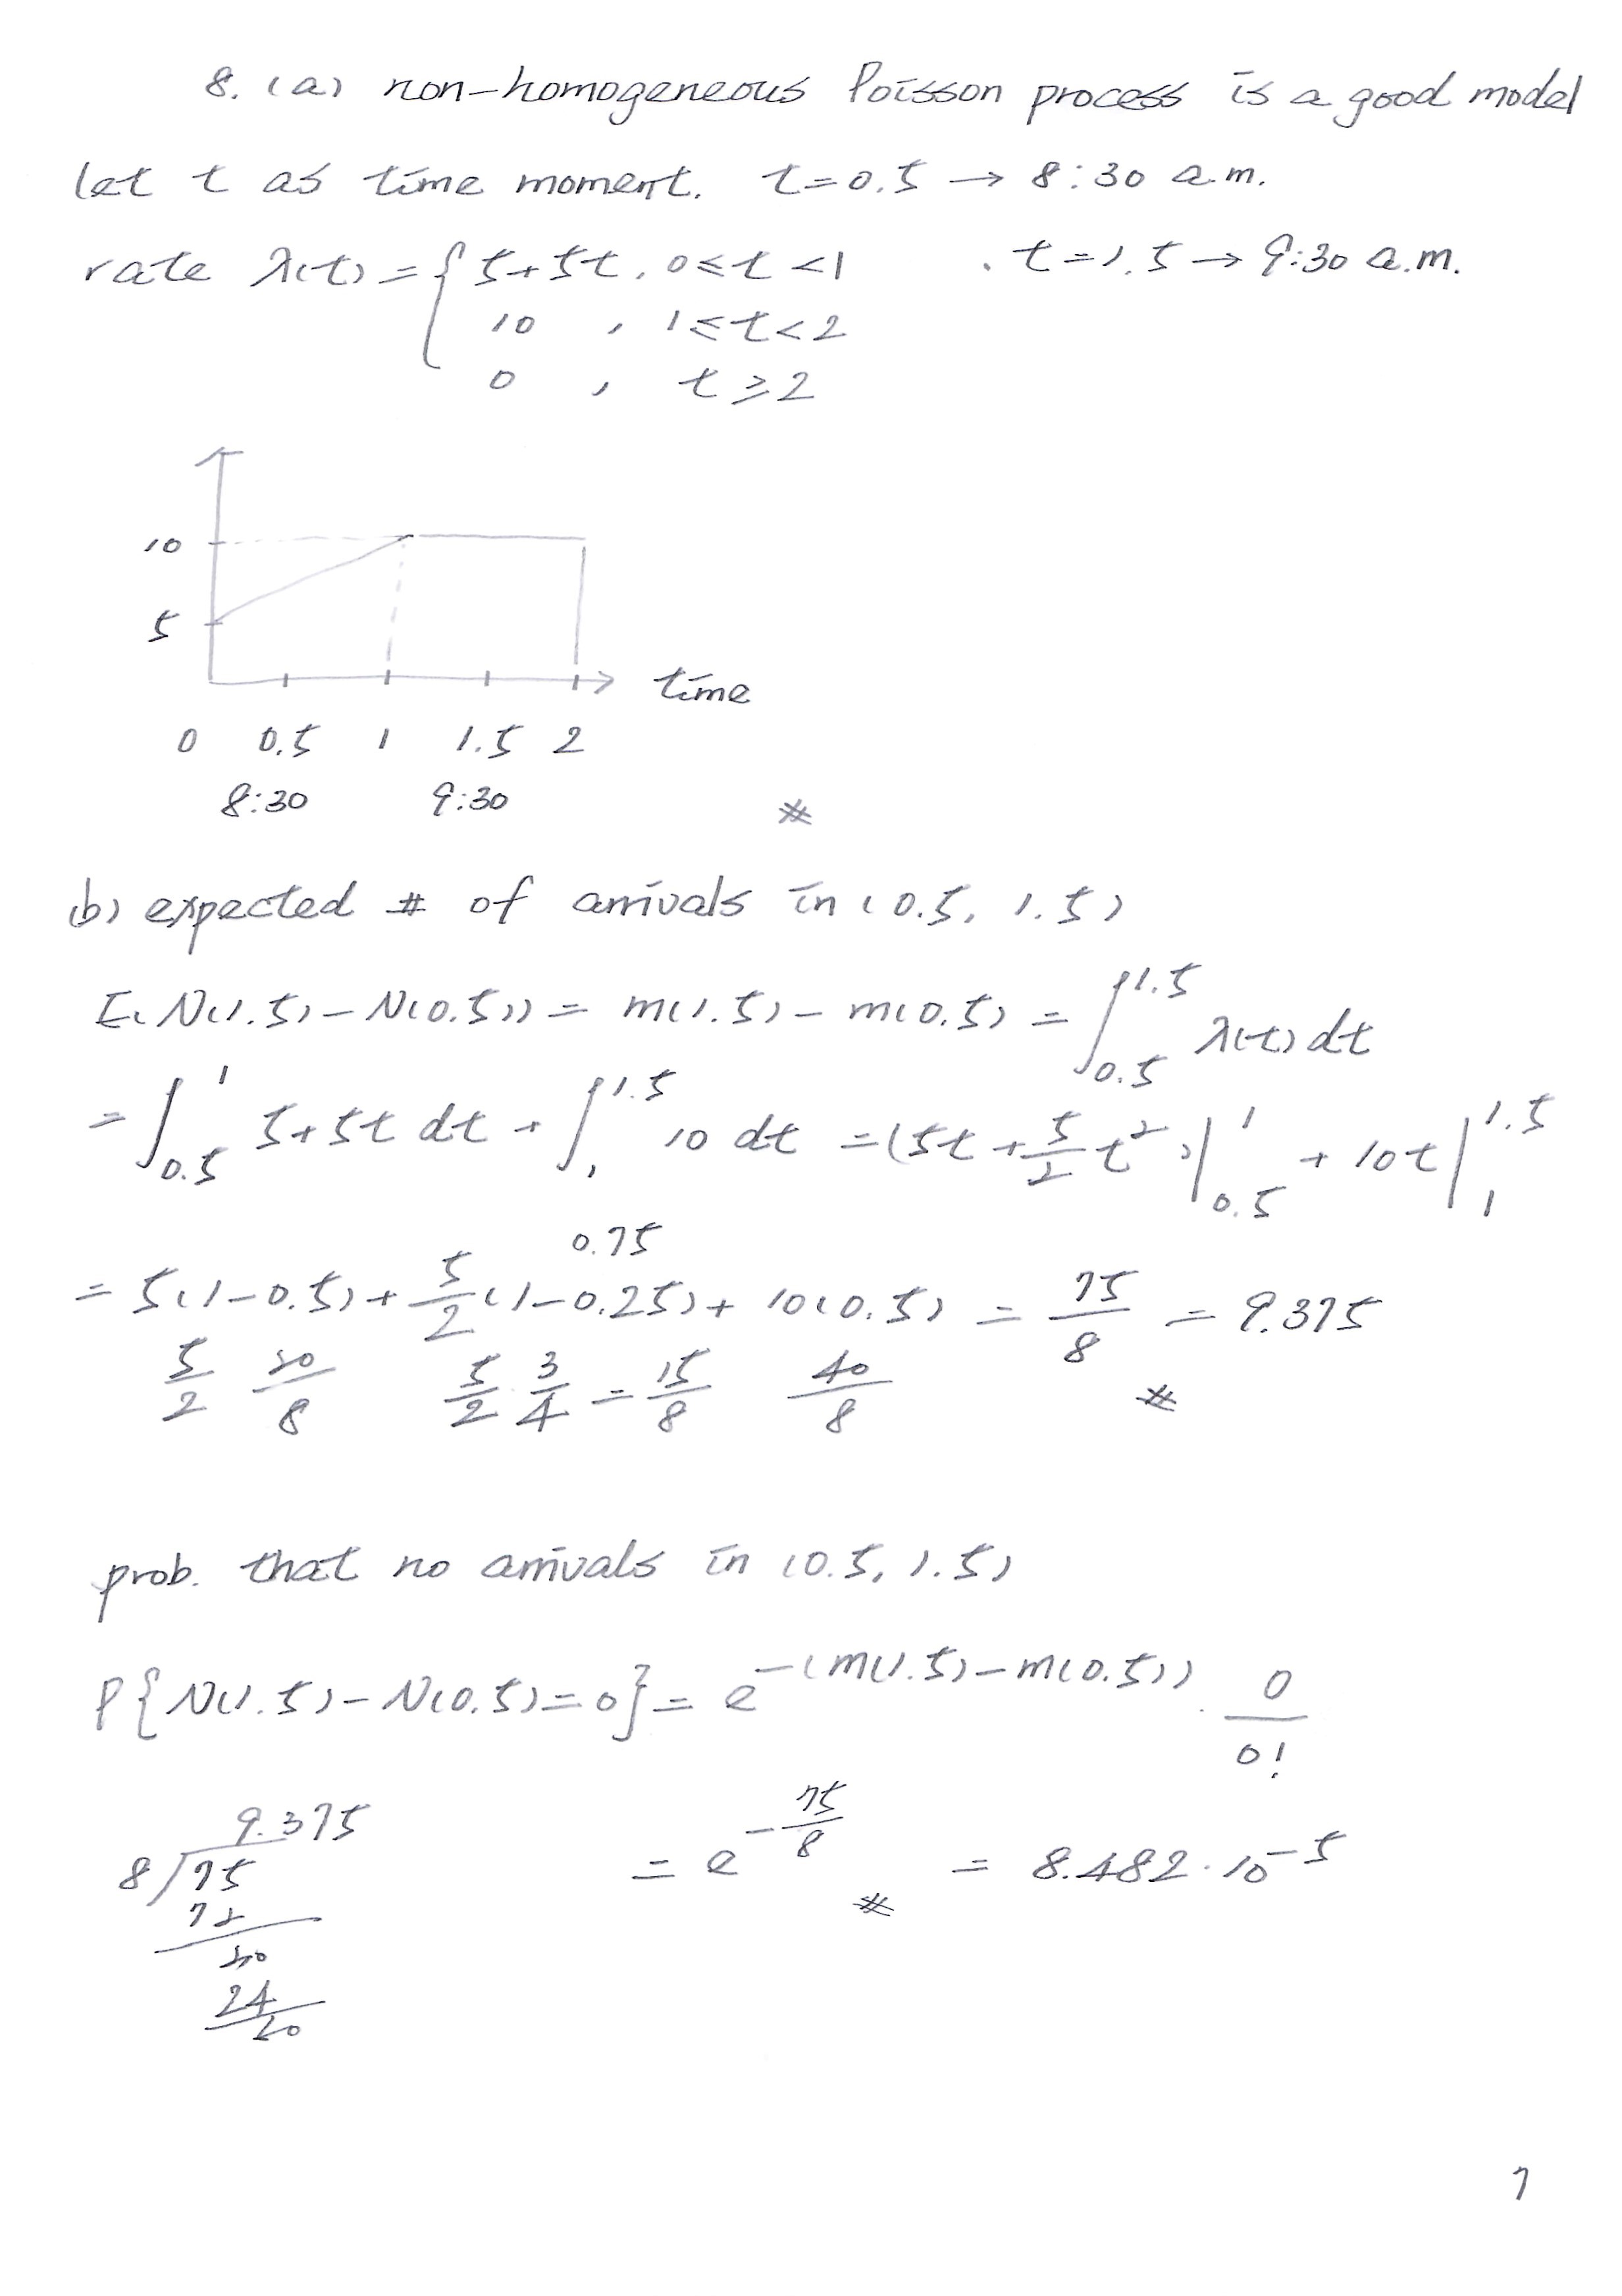 8. (a) non-homogeneous Poisson process is a good model
let t as time moment. t=0.5 → 8:30 a.m.
rate λ(t) = { 5+5t, 0≤t<1 . t=1.5 → 9:30 a.m.
10 , 1≤t<2
0 , t≥2
10
5
time
0 0.5 1 1.5 2
8:30 9:30 #
(b) expected # of arrivals in (0.5, 1.5)
E(N(1.5)-N(0.5)) = m(1.5) - m(0.5) = ∫_{0.5}^{1.5} λ(t) dt
= ∫_{0.5}^{1} 5+5t dt + ∫_{1}^{1.5} 10 dt = (5t + 5/2 t²)|_{0.5}^{1} + 10t|_{1}^{1.5}
0.75
= 5(1-0.5) + 5/2 (1-0.25) + 10(0.5) = 75/8 = 9.375
5/2 20/8 5/2 · 3/4 = 15/8 40/8 #
prob. that no arrivals in (0.5, 1.5)
P{N(1.5)-N(0.5)=0} = e^{-(m(1.5)-m(0.5))} · 0/0!
9.375
8 75 = e^{-75/8} = 8.482·10^{-5}
72 #
30
24
60
7